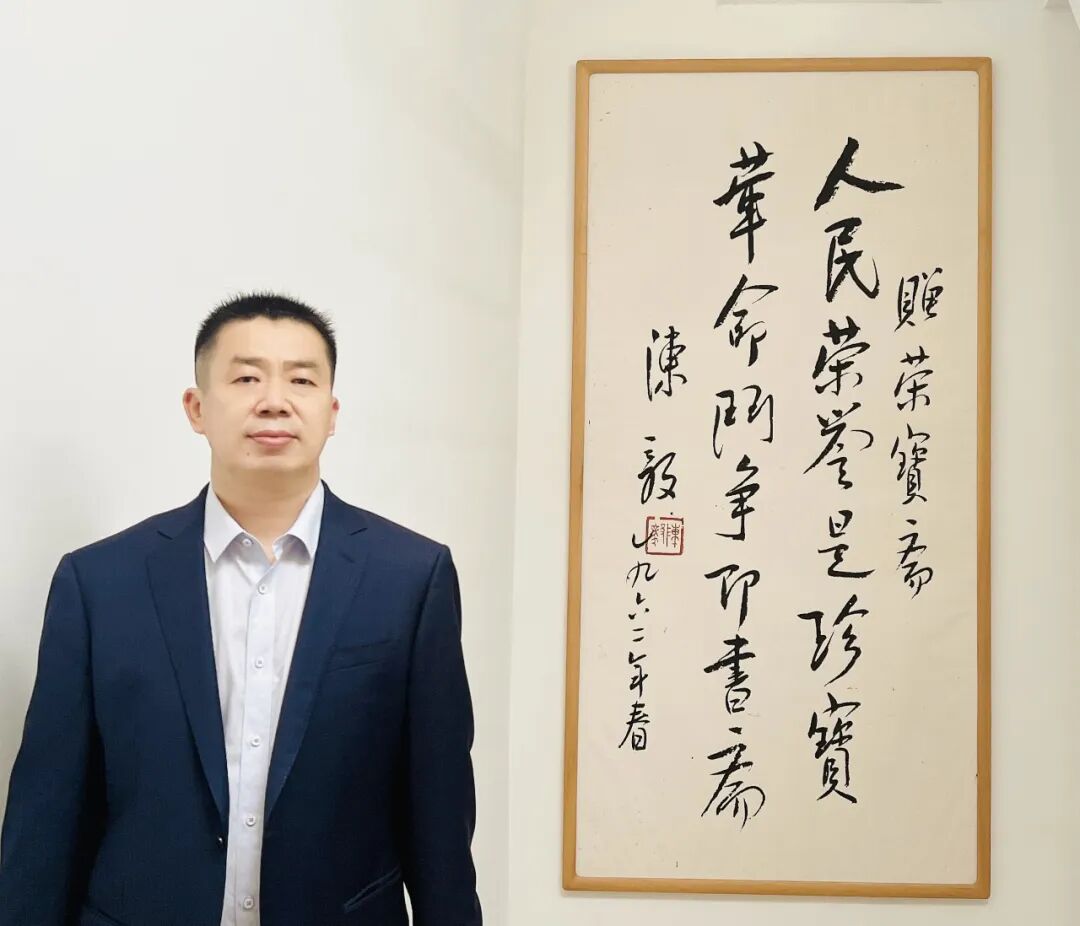 贈荣寳斋
人民荣誉是珍寳
革命鬥争即書斋
陳毅
一九六二年春